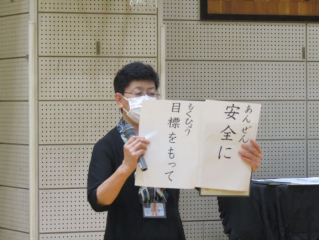 あんぜん
安全に
もくひょう
目標をもって